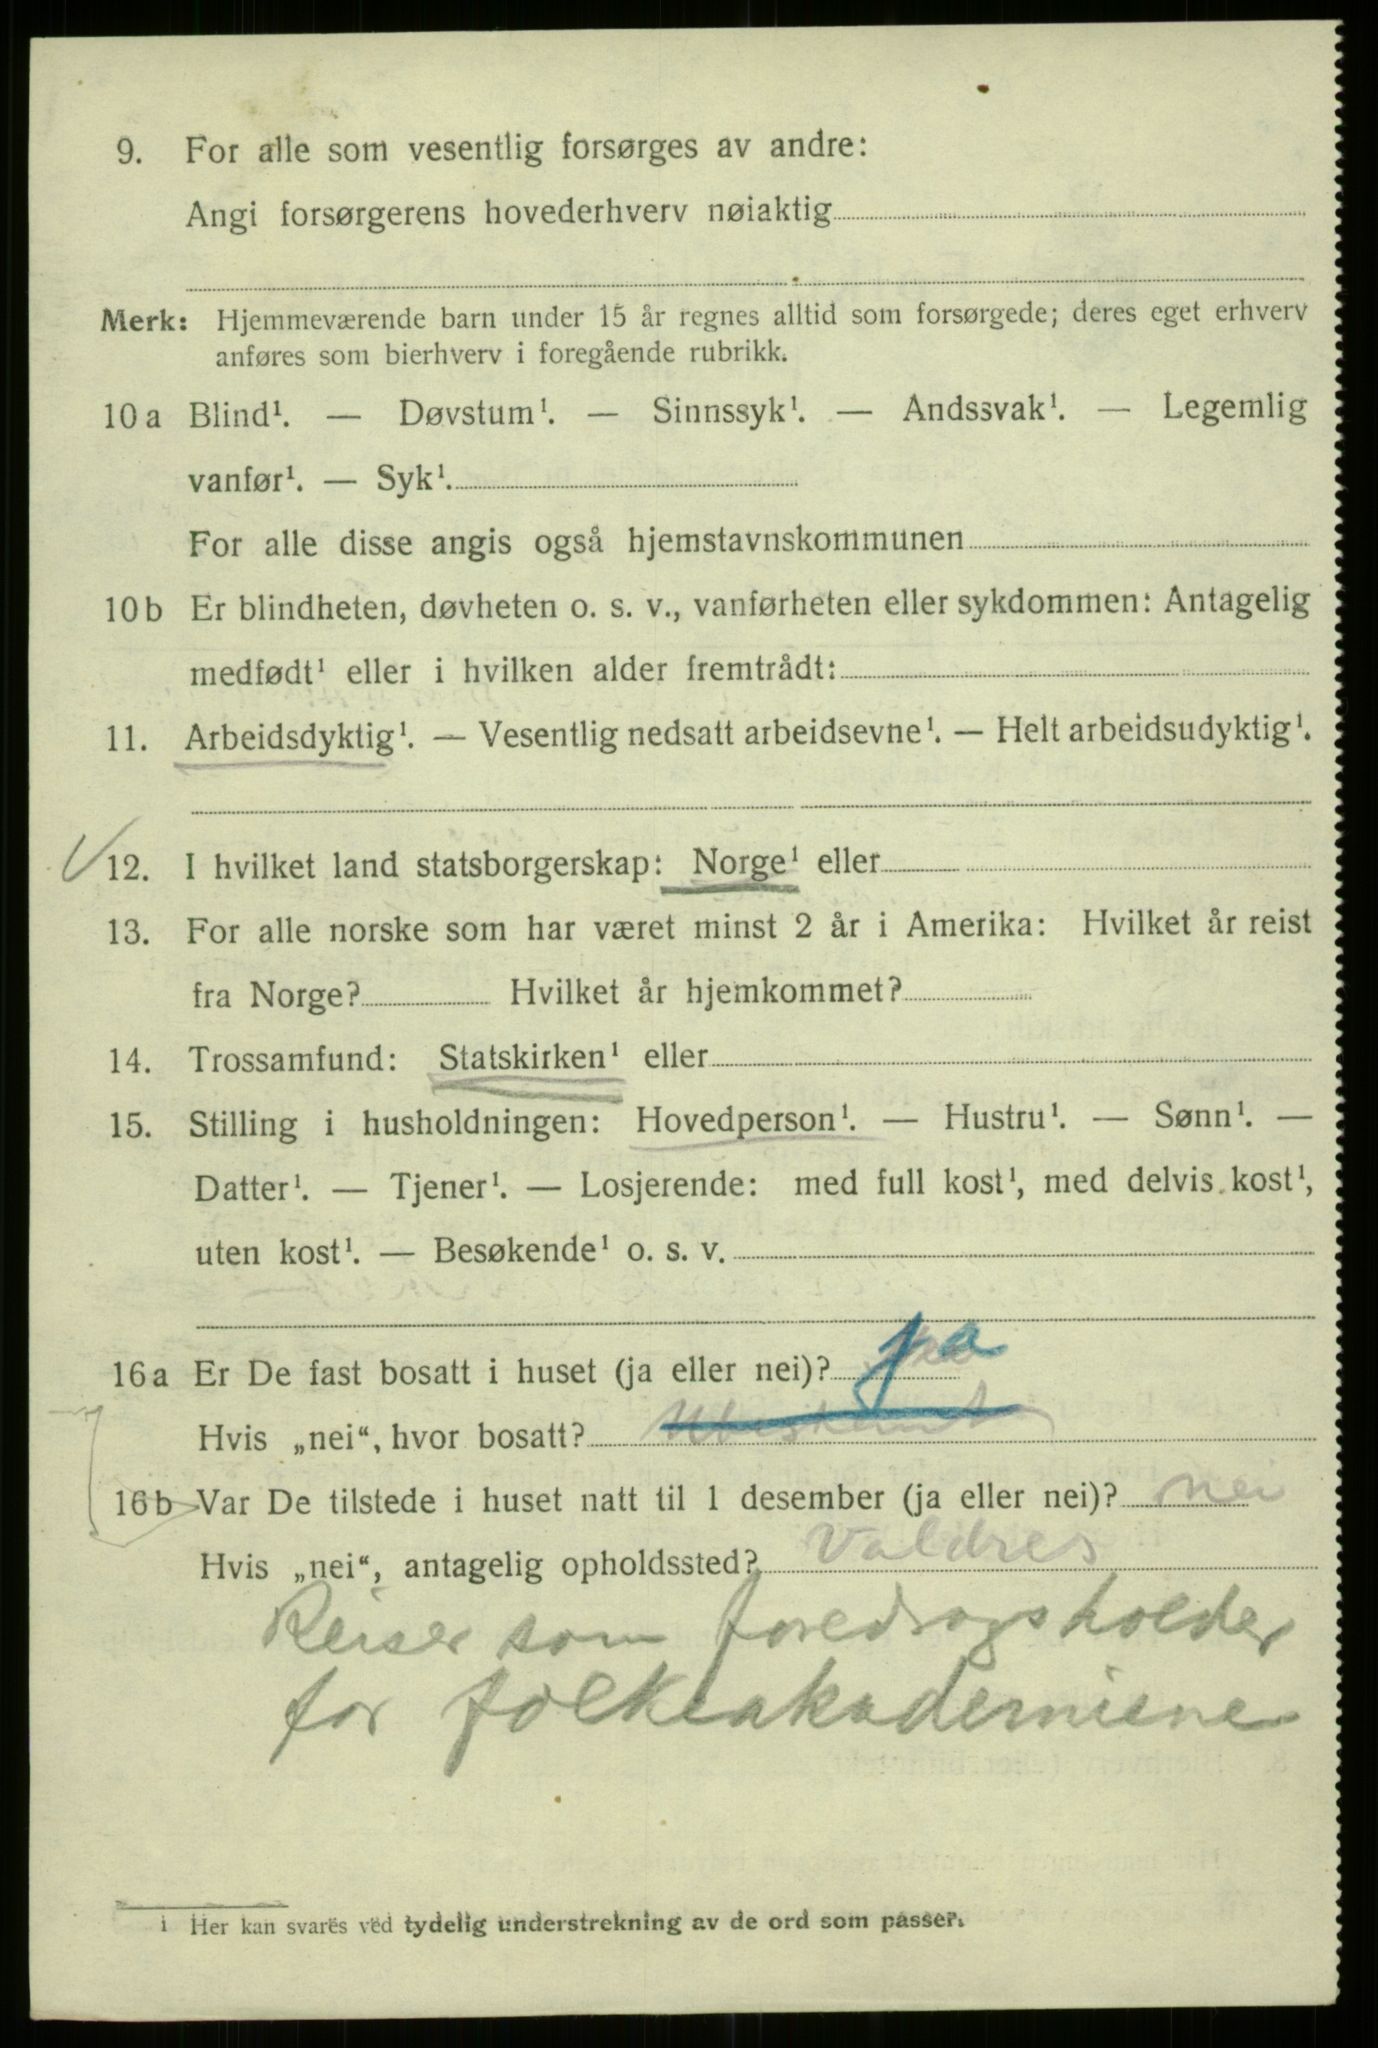 9. For alle som vesentlig forsørges av andre:
Angi forsørgerens hovederhverv nøiaktig
Merk: Hjemmeværende barn under 15 år regnes alltid som forsørgede; deres eget erhverv
anføres som bierhverv i foregående rubrikk.
10 a Blind¹. — Døvstum¹. — Sinnssyk¹. — Andssvak¹. — Legemlig
vanfør¹. — Syk¹.
For alle disse angis også hjemstavnskommunen
10 b Er blindheten, døvheten o. s. v., vanførheten eller sykdommen: Antagelig
medfødt¹ eller i hvilken alder fremtrådt:
11. Arbeidsdyktig¹. — Vesentlig nedsatt arbeidsevne¹. — Helt arbeidsudyktig¹.
12. I hvilket land statsborgerskap: Norge¹ eller
13. For alle norske som har været minst 2 år i Amerika: Hvilket år reist
fra Norge? Hvilket år hjemkommet?
14. Trossamfund: Statskirken¹ eller
15. Stilling i husholdningen: Hovedperson¹. — Hustru¹. — Sønn¹. —
Datter¹. — Tjener¹. — Losjerende: med full kost¹, med delvis kost¹,
uten kost¹. — Besøkende¹ o. s. v.
16 a Er De fast bosatt i huset (ja eller nei)? ja
Hvis „nei“, hvor bosatt? Ubeskemt
16 b Var De tilstede i huset natt til 1 desember (ja eller nei)? nei
Hvis „nei“, antagelig opholdssted? Valdres
Reiser som foredragsholder
for folkeakademiene
1 Her kan svares ved tydelig understrekning av de ord som passer.